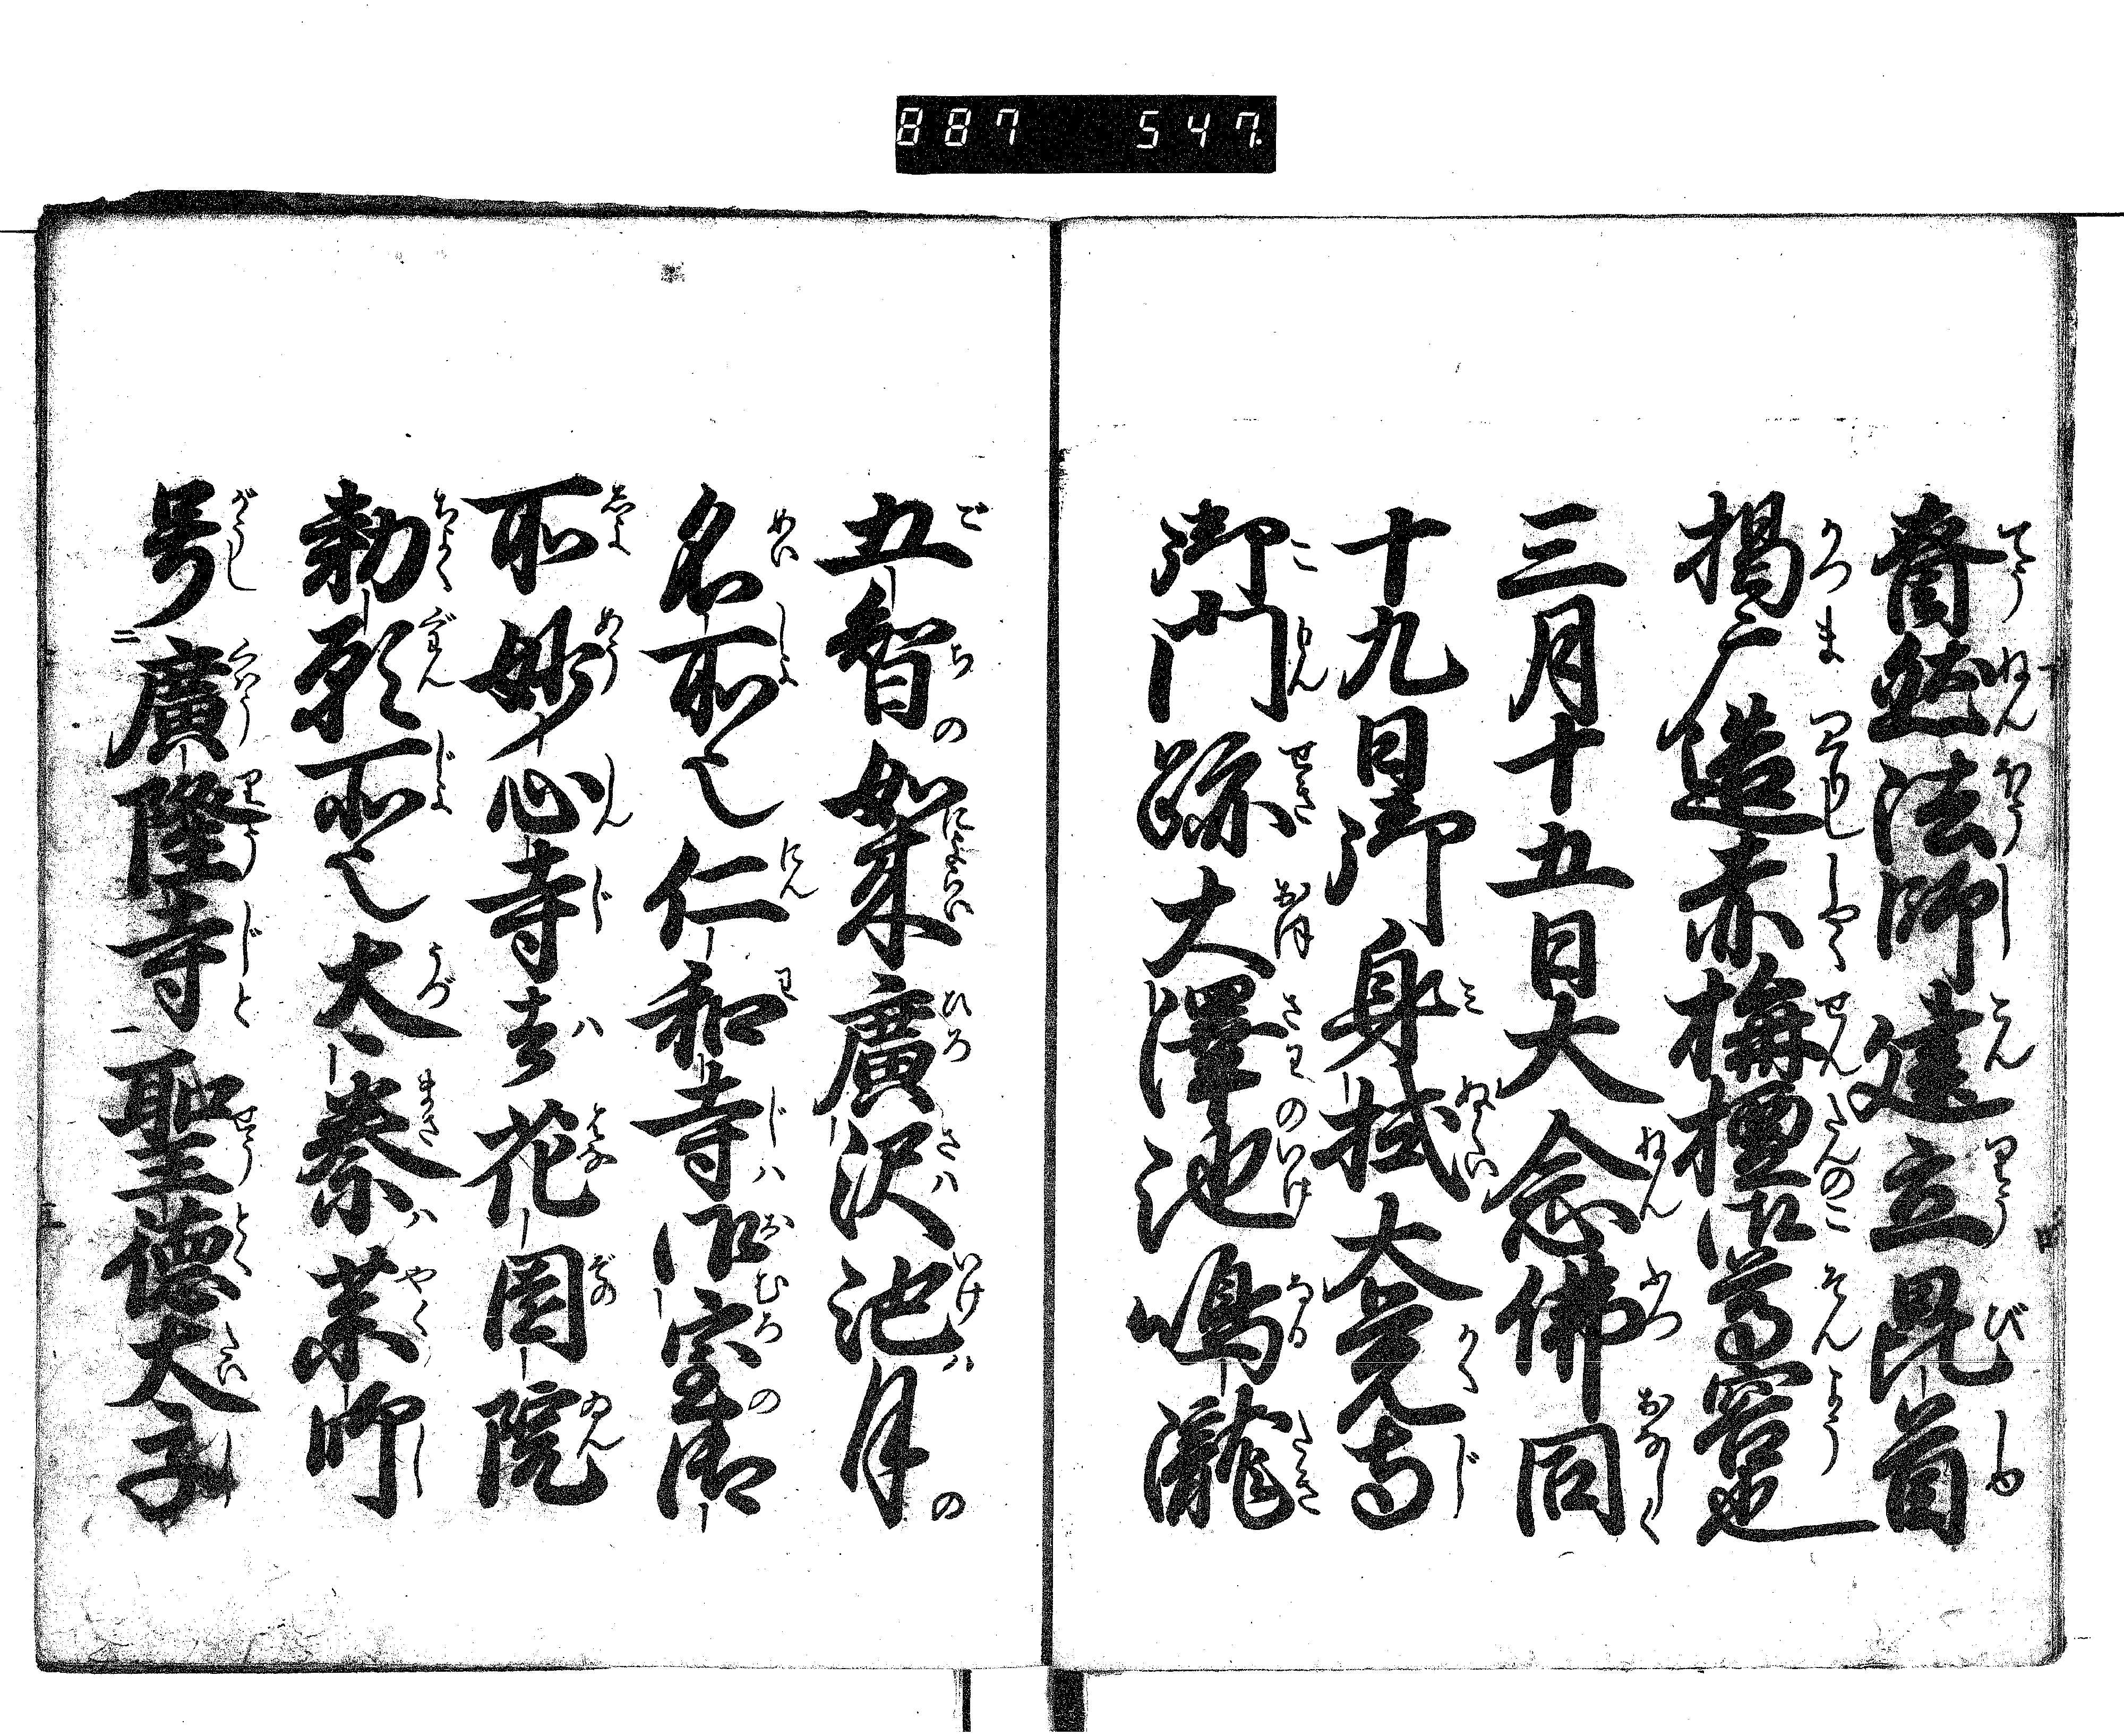 887 547
奝然法師建立毘首
羯广造赤栴檀御尊容也
三月十五日大念佛同
十九日御身拭大覚寺
御門跡大澤池鳴瀧
五智如来廣沢池月
名所也仁和寺御室御
所妙心寺者花園院
勅願所也太秦薬師
号廣隆寺聖徳太子